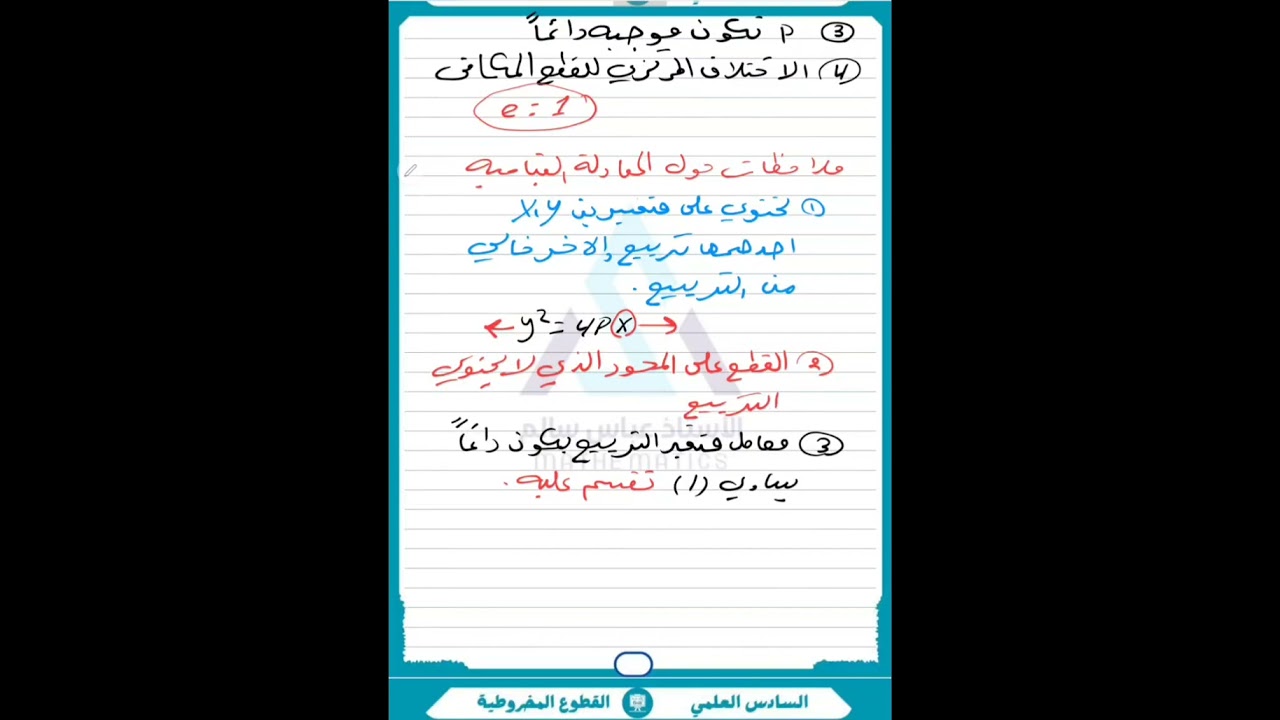 ③ P تكون موجبه دائماً
④ الاختلاف المركزي للقطع المكافئ
e = 1
ملاحظات حول المعادلة القياسيه
① تحتوي على متغيرين X,y
احدهما تربيع والاخر خالي
من التربيع .
← y² = 4PX →
② القطع على المحور الذي لا يحتوي
التربيع
الأستاذ عباس سالم
③ معامل متغير التربيع يكون دائماً
MATHEMATICS
يساوي (1) تقسم عليه .
السادس العلمي القطوع المخروطية